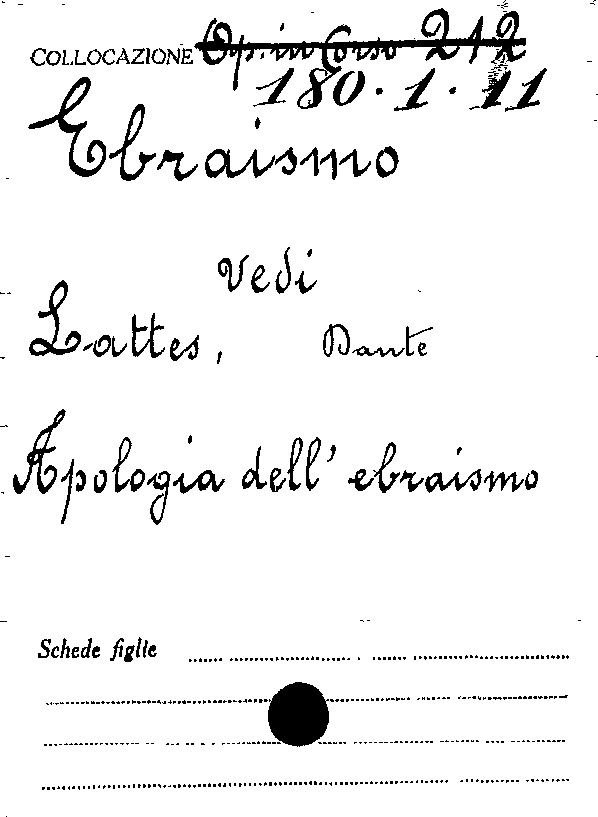 COLLOCAZIONE Op. in Corso 212
180.1.11
Ebraismo
Vedi
Lattes, Dante
Apologia dell' ebraismo
Schede figlie